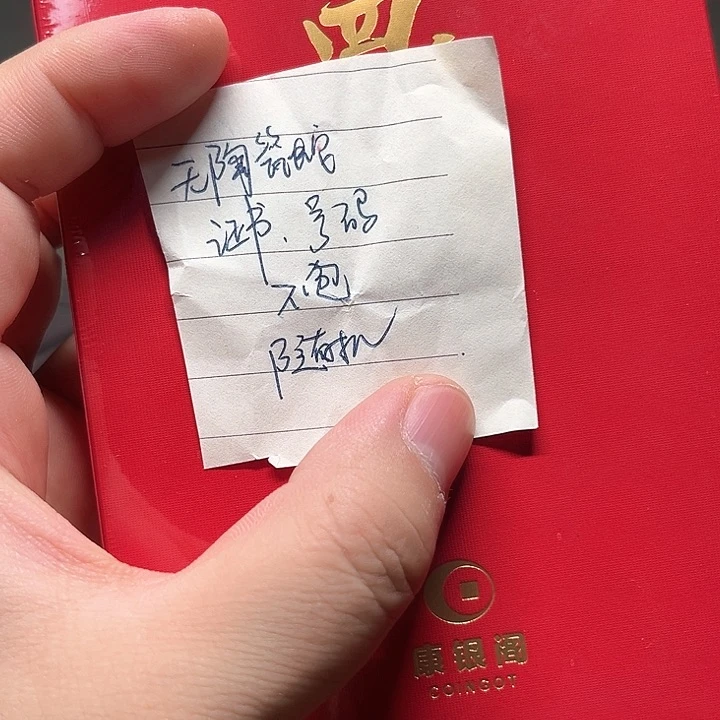 无陶瓷蛇
证书、号码
不包
随机
康银阁
COINGOT